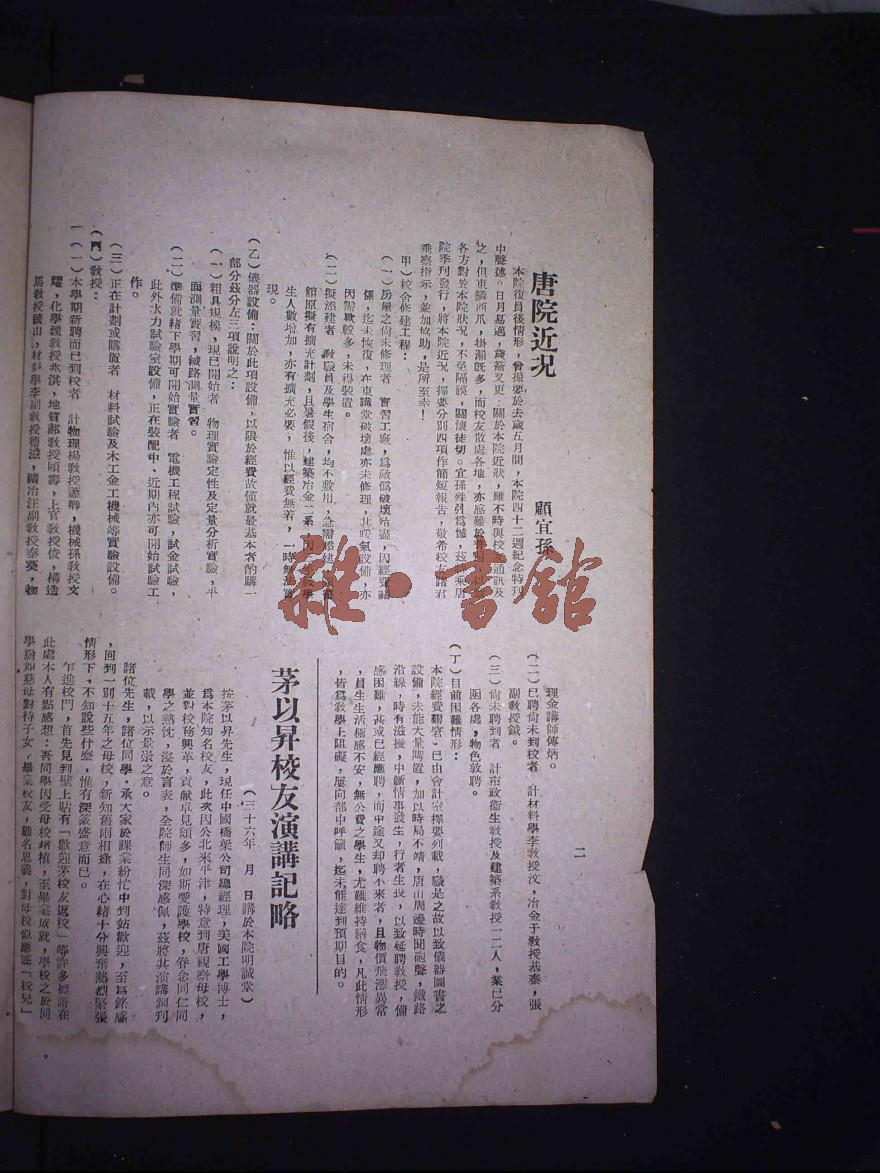 唐院近況
顧宜孫
本院復員後情形，曾撮要於去歲五月間，本院四十二週紀念特刊
中聲述。日月易邁，歲蓄又更，關於本院近狀，雖不時與校友通訊及
之，但東鱗西爪，掛漏旣多，而校友散處各地，亦感難於
各方對於本院狀況，不至隔膜，關懷徒切。宜孫殊引爲憾，茲乘唐
院季刊發行，將本院近況，擇要分別四項作簡短報告，敬希校友諸君
垂察指示，並加協助，是所至幸！
甲）校舍修建工程：
（一）房屋之尙未修理者　實習工廠，爲敵僞破壞殆盡，因經費關
係，迄未恢復，在東講堂破壞處亦未修理，其暖氣設備，亦
因需欵較多，未得裝置。
（二）擬添建者　敎職員及學生宿舍，均不敷用，急需添建，
館原擬有擴充計劃，且暑假後，建築冶金二系，因
生人數增加，亦有擴充必要，惟以經費無着，一時無法實
現。
（乙）儀器設備：關於此項設備，以限於經費故僅就最基本者酌購一
部分茲分左三項說明之：
（一）粗具規模，現已開始者　物理實驗定性及定量分析實驗，平
面測量實習，鐵路測量實習。
（二）準備就緒下學期可開始實驗者　電機工程試驗，試金試驗，
此外水力試驗室設備，正在裝配中，近期內亦可開始試驗工
作。
（三）正在計劃或購置者　材料試驗及木工金工機械等實驗設備。
（丙）敎授：
（一）本學期新聘而已到校者　計物理楊敎授藎卿，機械孫敎授文
耀，化學魏敎授永淇，地質鄺敎授碩壽，上官敎授俊，構造
馬敎授麓山，材料學李副敎授德滋，鑛冶汪副敎授泰葵，物
二
理金講師傅炳。
（二）已聘尙未到校者　計材料學李敎授汶，冶金于敎授基泰，張
副敎授鋮。
（三）尙未聘到者　計市政衞生敎授及建築系敎授一二人，業已分
函各處，物色敦聘。
（丁）目前困難情形：
本院經費艱窘，已由會計室擇要列載，職是之故以致儀器圖書之
設備，未能大量購置，加以時局不靖，唐山周邊時聞砲聲，鐵路
沿線，時有滋擾，中斷情事發生，行者生畏，以致延聘敎授，備
感困難，甚或已經應聘，而中途又却聘不來者，且物價飛漲異常
，員生生活極感不安，無公費之學生，尤難維持膳食，凡此情形
，皆爲敎學上阻礙，屢向部中呼籲，迄未能達到預期目的。
茅以昇校友演講記略
（三十六年　月　日講於本院明誠堂）
按茅以昇先生，現任中國橋梁公司總經理，美國工學博士，
爲本院知名校友，此次因公北來平津，特意到唐視察母校，
並對校務興革，貢獻卓見頗多，如斯愛護學校，眷念同仁同
學之熱忱，溢於言表，全院師生同深感佩，茲將其演講詞刊
載，以示景崇之意。
諸位先生，諸位同學，承大家於課業紛忙中到站歡迎，至爲銘感
，回到一別十五年之母校，新知舊雨相逢，在心緒十分興奮熱烈緊張
情形下，不知說些什麼，惟有深蓁盛意而已。
乍進校門，首先見到壁上貼有「歡迎茅校友返校」等許多標語在
此處本人有點感想：吾同學因受母校培植，至畢業成就，學校之於同
學猶如慈母對待子女，畢業校友，顧名思義，對母校似應誕「校兒」